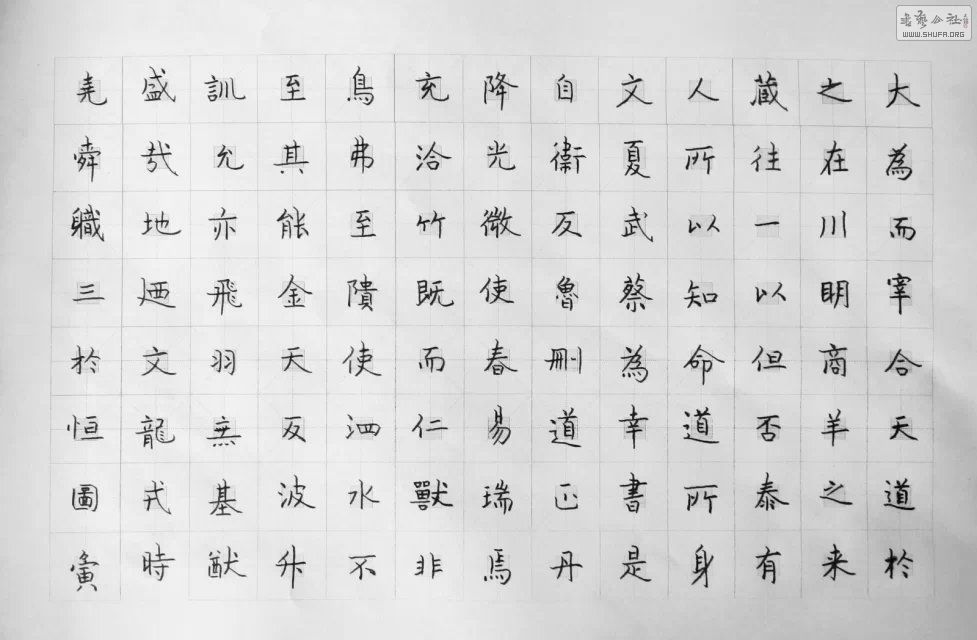 大為而宰合天道於
之在川明商羊之来
蔵往一以但否泰有
人所以知命道所身
文夏武蔡為幸書是
自衛反魯删道正丹
降光微使春易瑞焉
充洽竹既而仁獸非
鳥弗至隤使泗水不
至其能金天反波升
訓允亦飛羽無基猷
盛哉地迺文龍戎時
堯舜職三於恒圖夤
書藝公社
WWW.SHUFA.ORG